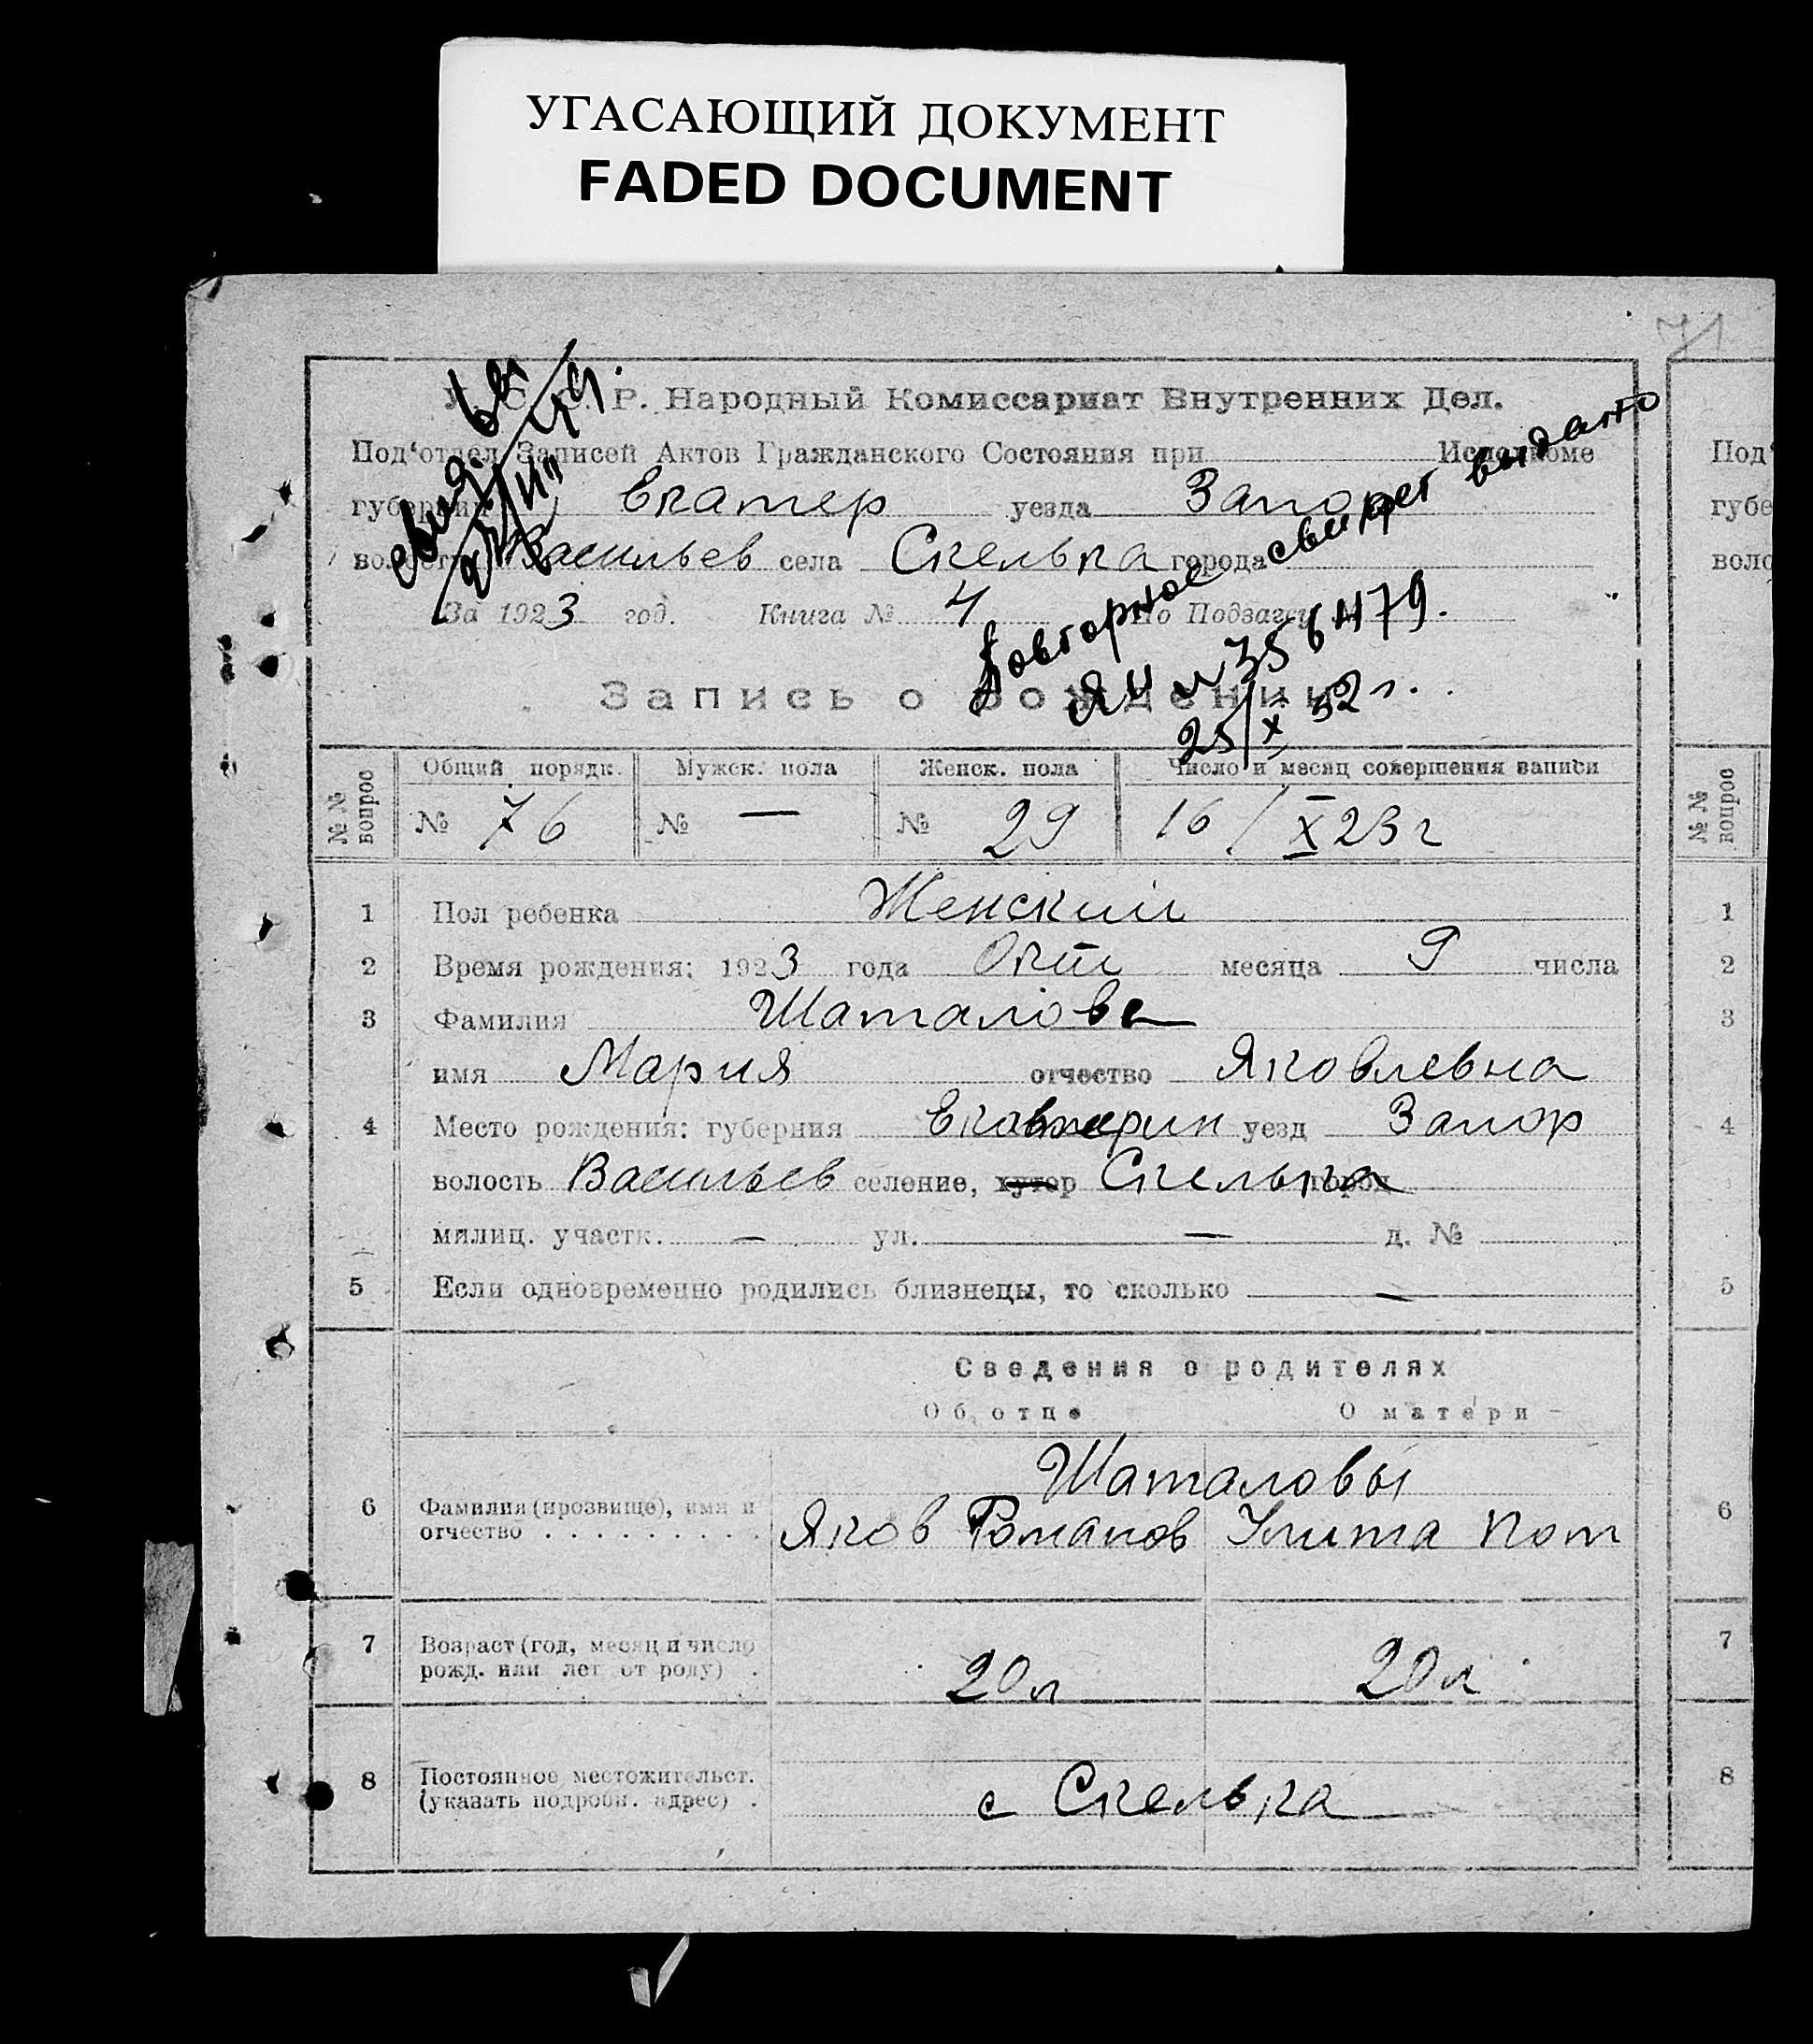 УГАСАЮЩИЙ ДОКУМЕНТ
FADED DOCUMENT
71
У. С. С. Р. Народный Комиссариат Внутренних Дел.
Под'отдел Записей Актов Гражданского Состояния при Исполкоме
губернии Екатер уезда Запор
волости Васильев села Скелька города
За 1923 год. Книга № 4 По Подзагсу
свид. вы
Повторное свидет выдано
ЯЦ № 356479.
25/X 52 г.
Запись о рождении
№№ вопрос
Общий порядк. Мужск. пола Женск. пола Число и месяц совершения записи
№ 76 № — № 29 16/X 23 г
1 Пол ребенка Женский
2 Время рождения: 1923 года Окт месяца 9 числа
3 Фамилия Шаталова
имя Мария отчество Яковлевна
4 Место рождения: губерния Екатерин уезд Запор
волость Васильев селение, хутор Скелька город
милиц. участк. — ул. — д. №
5 Если одновременно родились близнецы, то сколько —
Сведения о родителях
Об отце О матери
Шаталовы
6 Фамилия (прозвище), имя и
отчество Яков Романов Улита Пот
7 Возраст (год, месяц и число
рожд. или лет от роду) 20 л 20 л
8 Постоянное местожительст.
(указать подробн. адрес) с Скелька
Под'
губе
воло
№№ вопрос
1
2
3
4
5
6
7
8